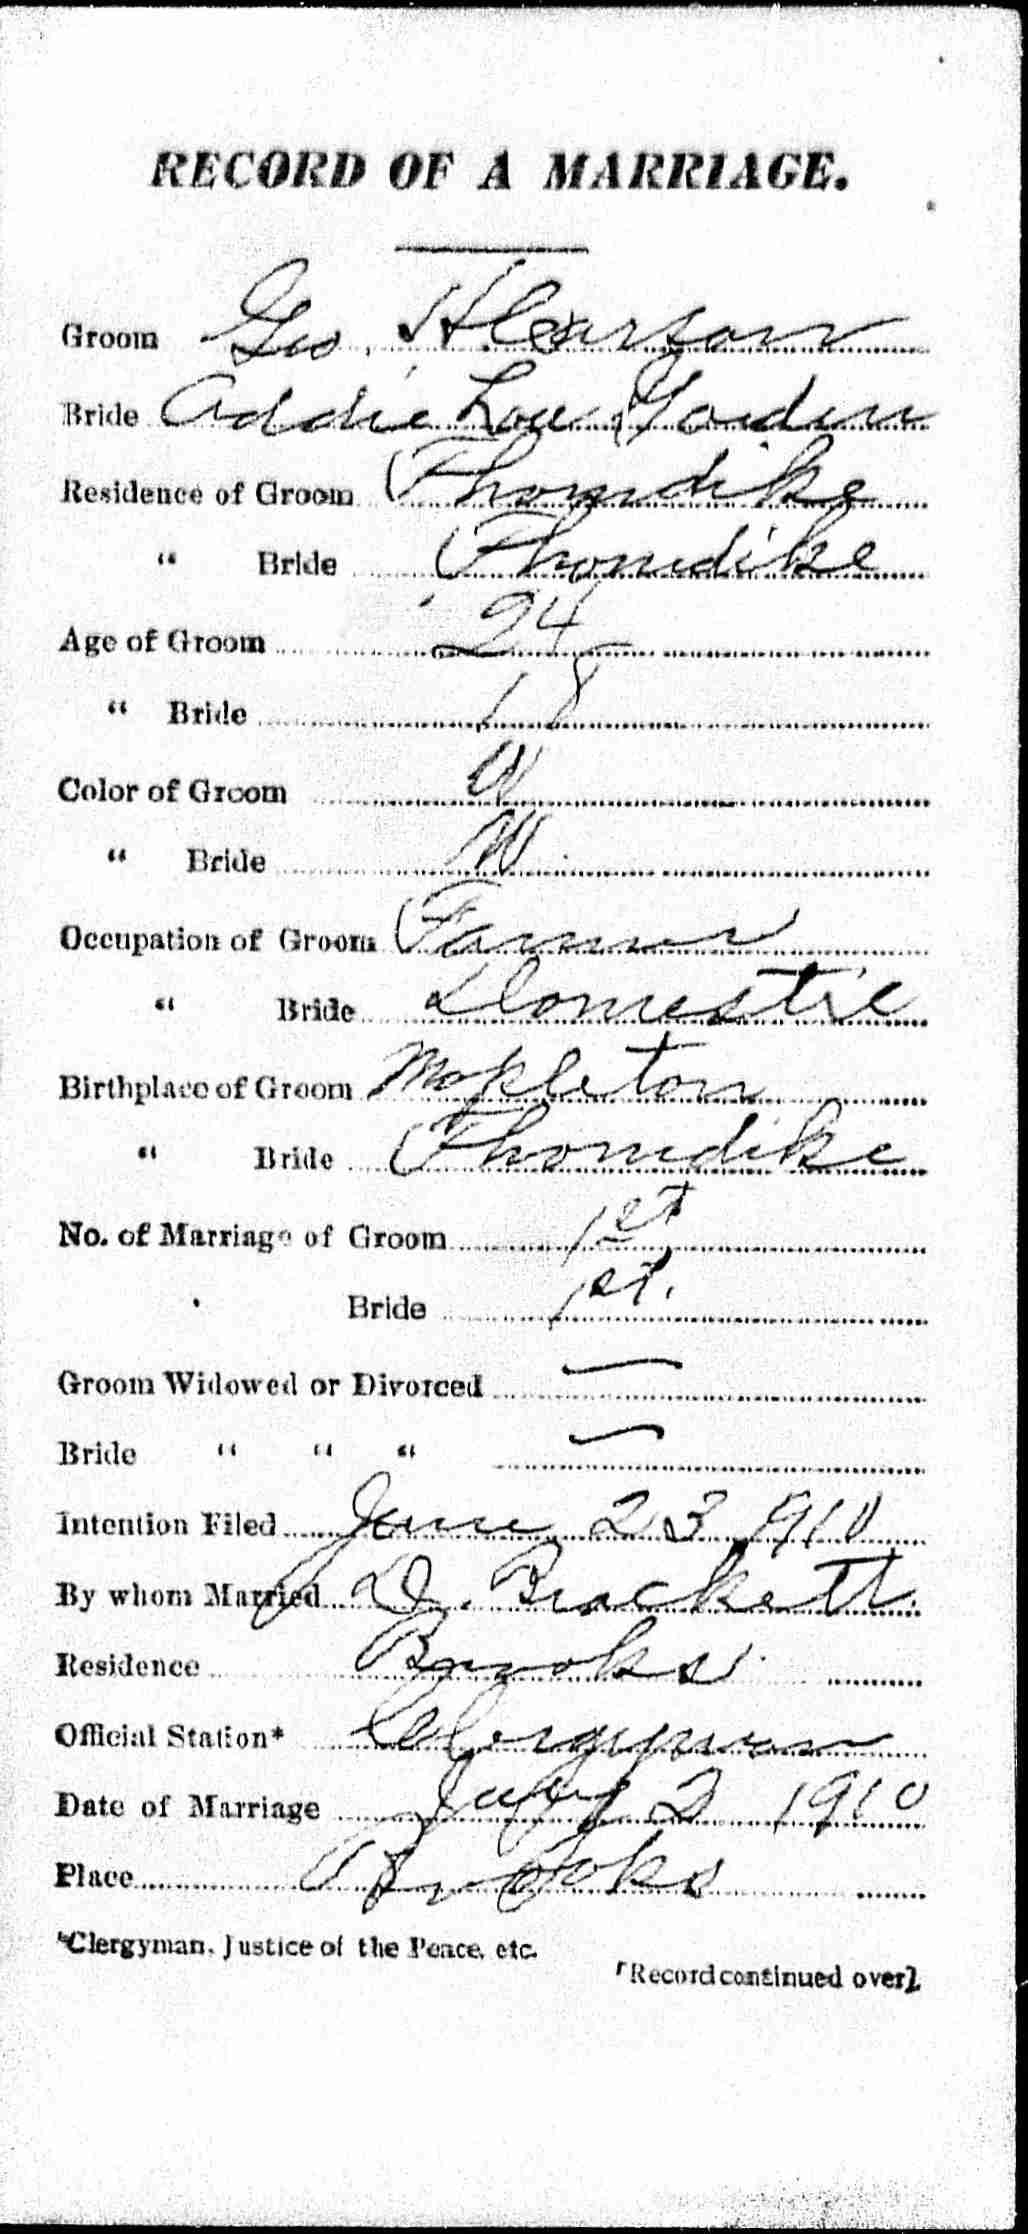 RECORD OF A MARRIAGE.
Groom Geo. H Clearson
Bride Addie Lou
Residence of Groom Thorndike
" Bride Thorndike
Age of Groom 24
" Bride 18
Color of Groom W
" Bride W
Occupation of Groom Farmer
" Bride Domestic
Birthplace of Groom Mapleton
" Bride Thorndike
No. of Marriage of Groom 1st
Bride 1st.
Groom Widowed or Divorced —
Bride " " " —
Intention Filed June 23 1910
By whom Married D. Brackett
Residence Brooks
Official Station* Clergyman
Date of Marriage July 2 1910
Place Brooks
*Clergyman, Justice of the Peace, etc.
[Record continued over].